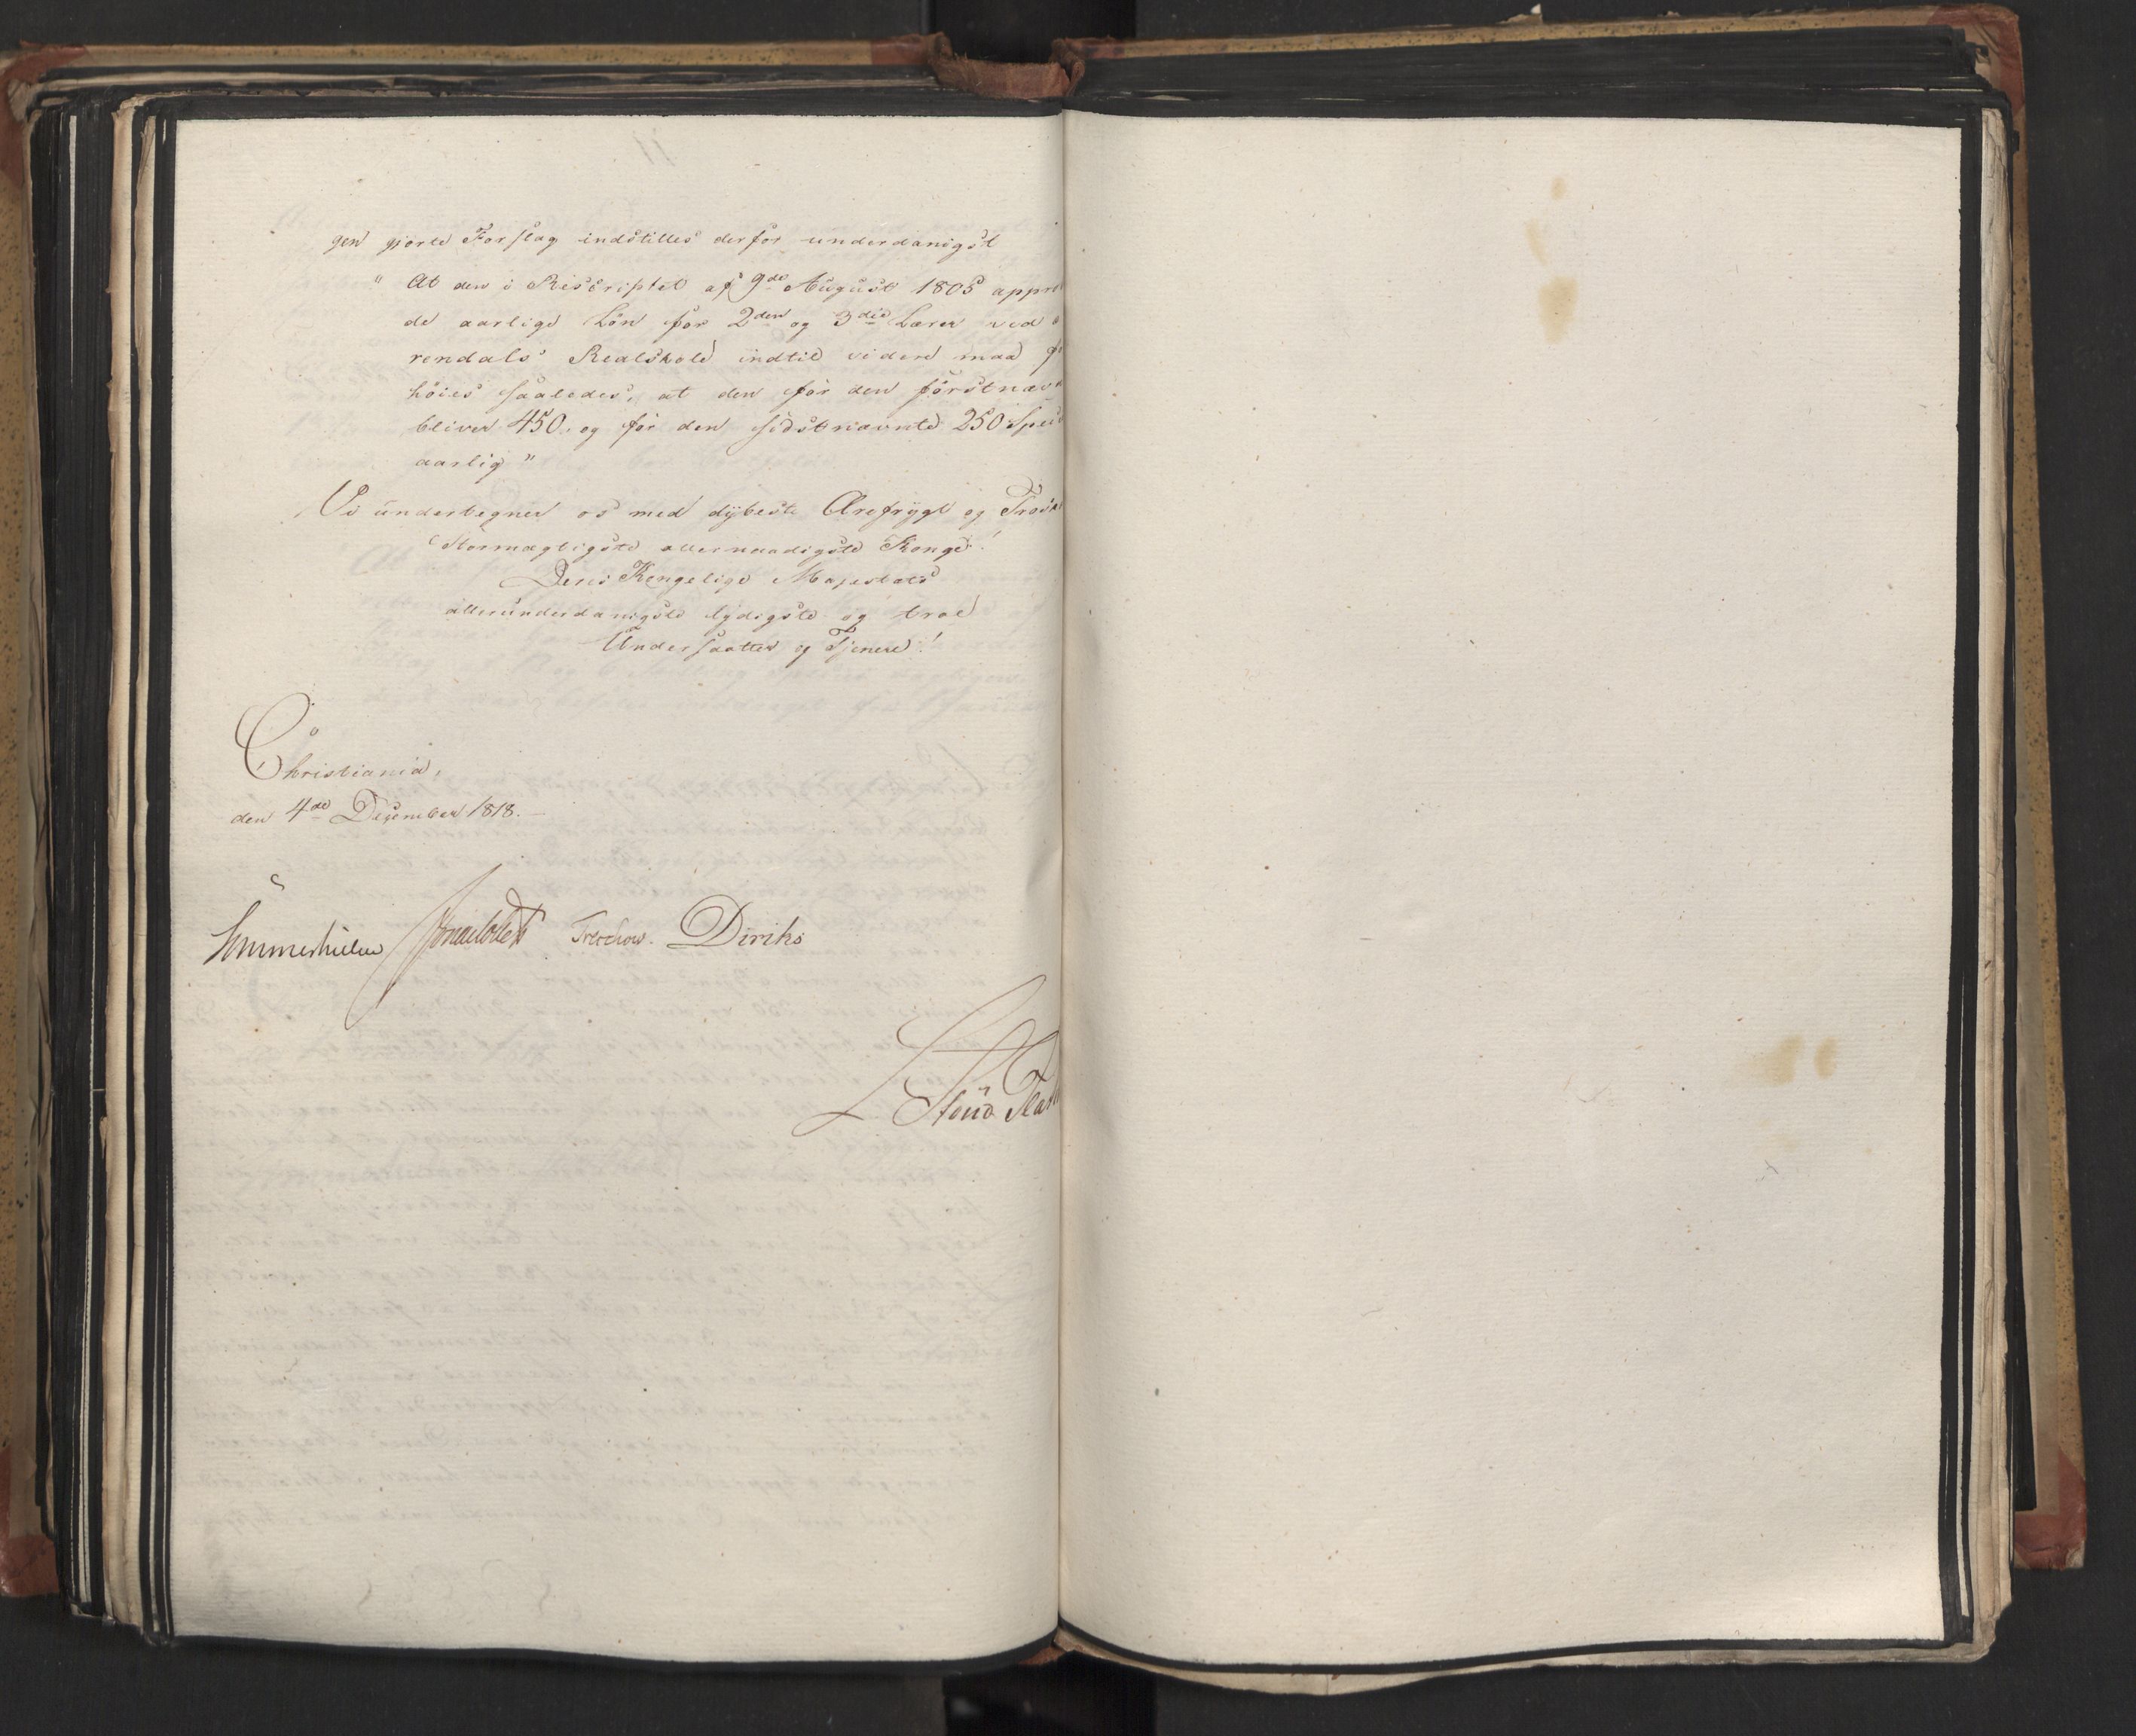 gen gjorte Forslag indstilles derfor underdanigst
" At den i Rescriptet af 9de August 1805 appro
de aarlige Løn for 2den og 3die Lærer ved
rendals Realskole indtil videre maa
høies saaledes, at den for den førstnæv
bliver 450. og for den sidstnævnte 250 Speci
aarlig"
Vi undertegner os med dybeste Ærefrygt og Trosk
Stormægtigste allernaadigste Konge!
Deres Kongelige Majestæts
allerunderdanigste lydigste og troe
Undersaatter og Tjenere!
Christiania,
den 4de December 1818.
Sommerhielm Treschow. Diriks